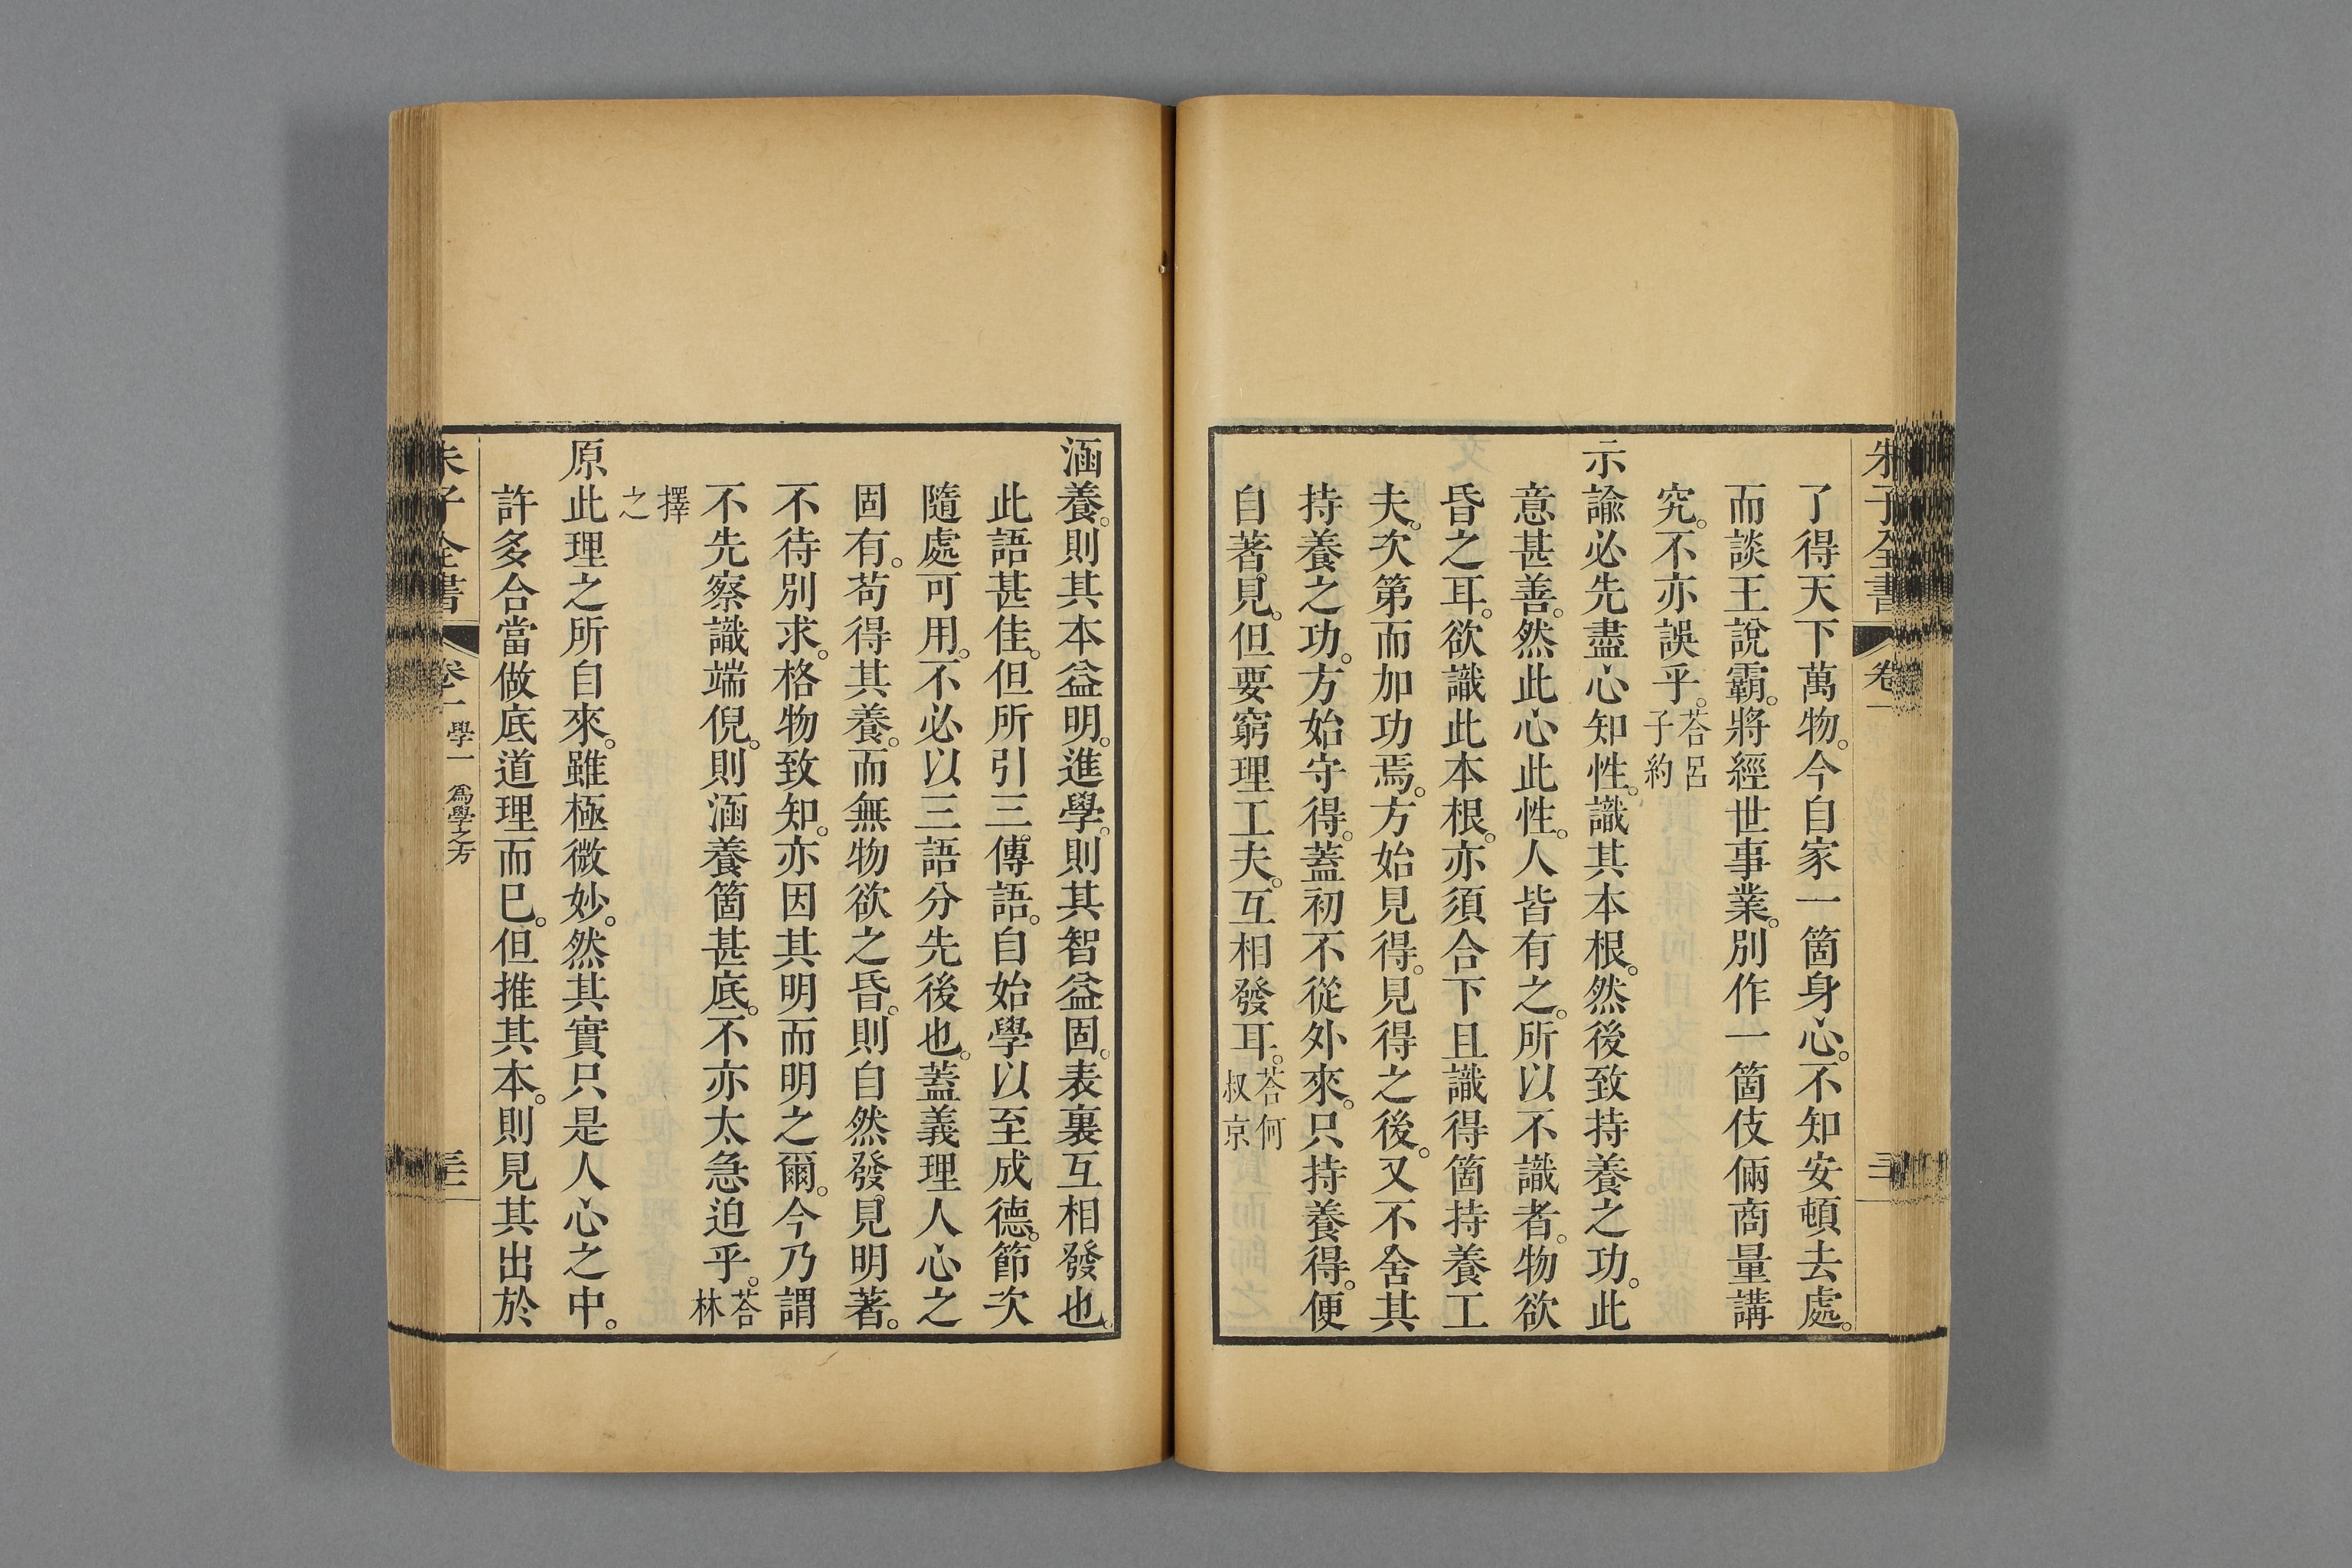 朱子全書 卷一
了得天下萬物。今自家一箇身心。不知安頓去處。
而談王說霸。將經世事業。別作一箇伎倆商量講
究。不亦誤乎。荅呂子約
示諭必先盡心知性。識其本根。然後致持養之功。此
意甚善。然此心此性。人皆有之。所以不識者。物欲
昏之耳。欲識此本根。亦須合下且識得箇持養工
夫。次第而加功焉。方始見得。見得之後。又不舍其
持養之功。方始守得。蓋初不從外來。只持養得。便
自著見。但要窮理工夫。互相發耳。荅何叔京
涵養。則其本益明。進學。則其智益固。表裏互相發也。
此語甚佳。但所引三傳語。自始學以至成德。節次
隨處可用。不必以三語分先後也。蓋義理人心之
固有。苟得其養。而無物欲之昏。則自然發見明著。
不待別求。格物致知。亦因其明而明之爾。今乃謂
不先察識端倪。則涵養箇甚底。不亦太急迫乎。荅林
擇之
原此理之所自來。雖極微妙。然其實只是人心之中。
許多合當做底道理而已。但推其本。則見其出於
朱子全書 卷一 學一 爲學之方